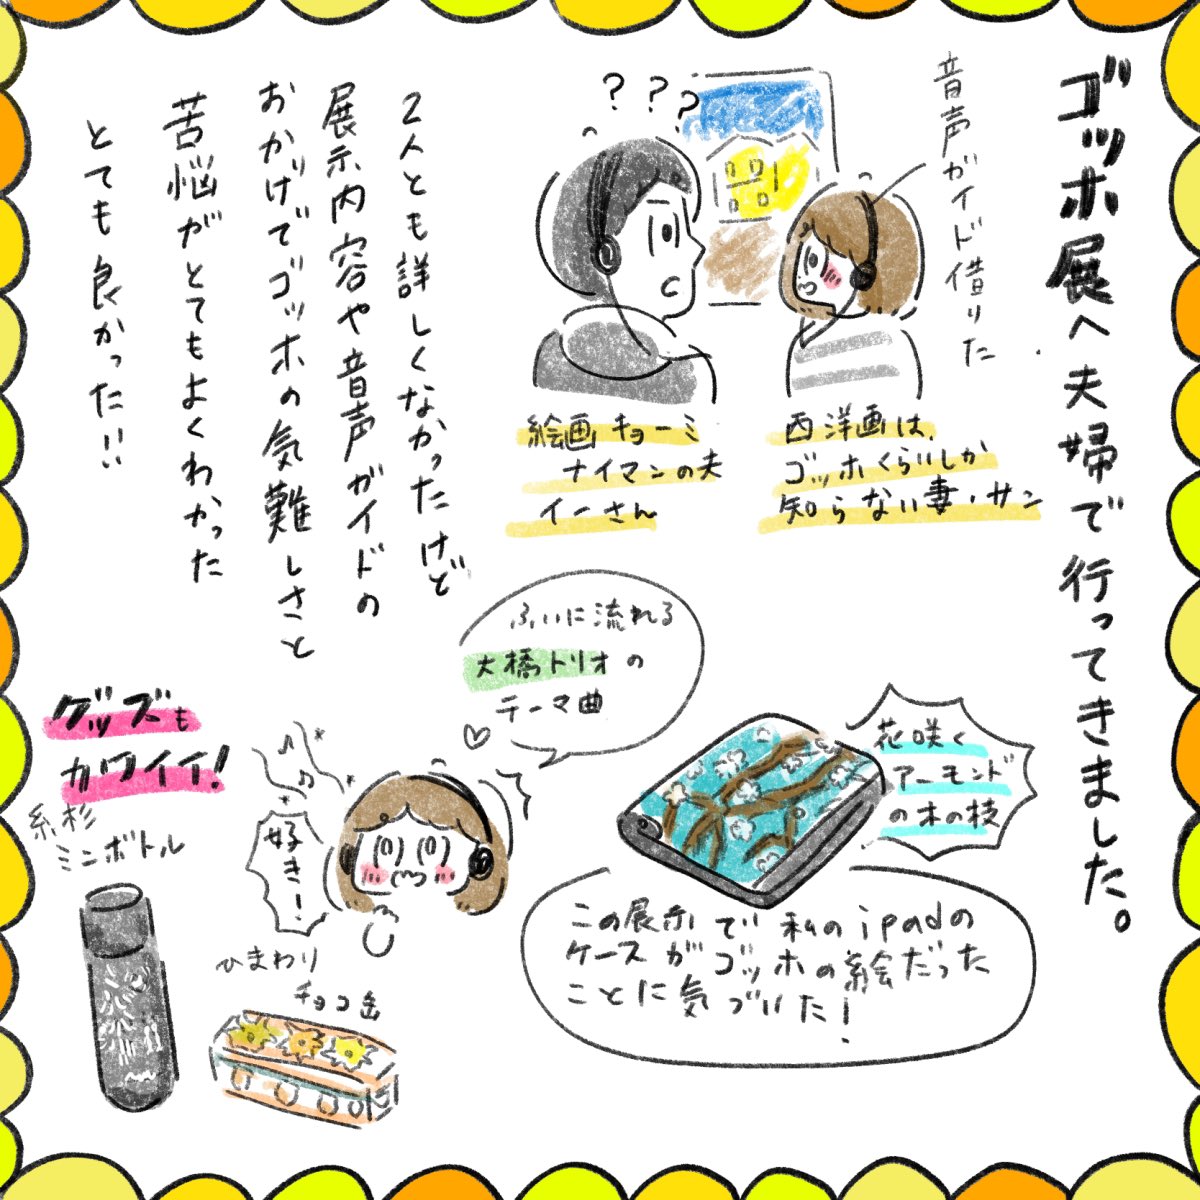 ゴッホ展へ夫婦で行ってきました。
音声ガイド借りた
???
西洋画は、
ゴッホくらいしか
知らない妻・サン
絵画キョーミ
ナイマンの夫
イーさん
2人とも詳しくなかったけど
展示内容や音声ガイドの
おかげでゴッホの気難しさと
苦悩がとてもよくわかった
とても良かった!!
ふいに流れる
大橋トリオの
テーマ曲
好き!
花咲く
アーモンド
の木の枝
この展示で私のipadの
ケースがゴッホの絵だった
ことに気づいた!
グッズも
カワイイ!
糸杉
ミニボトル
ひまわり
チョコ缶